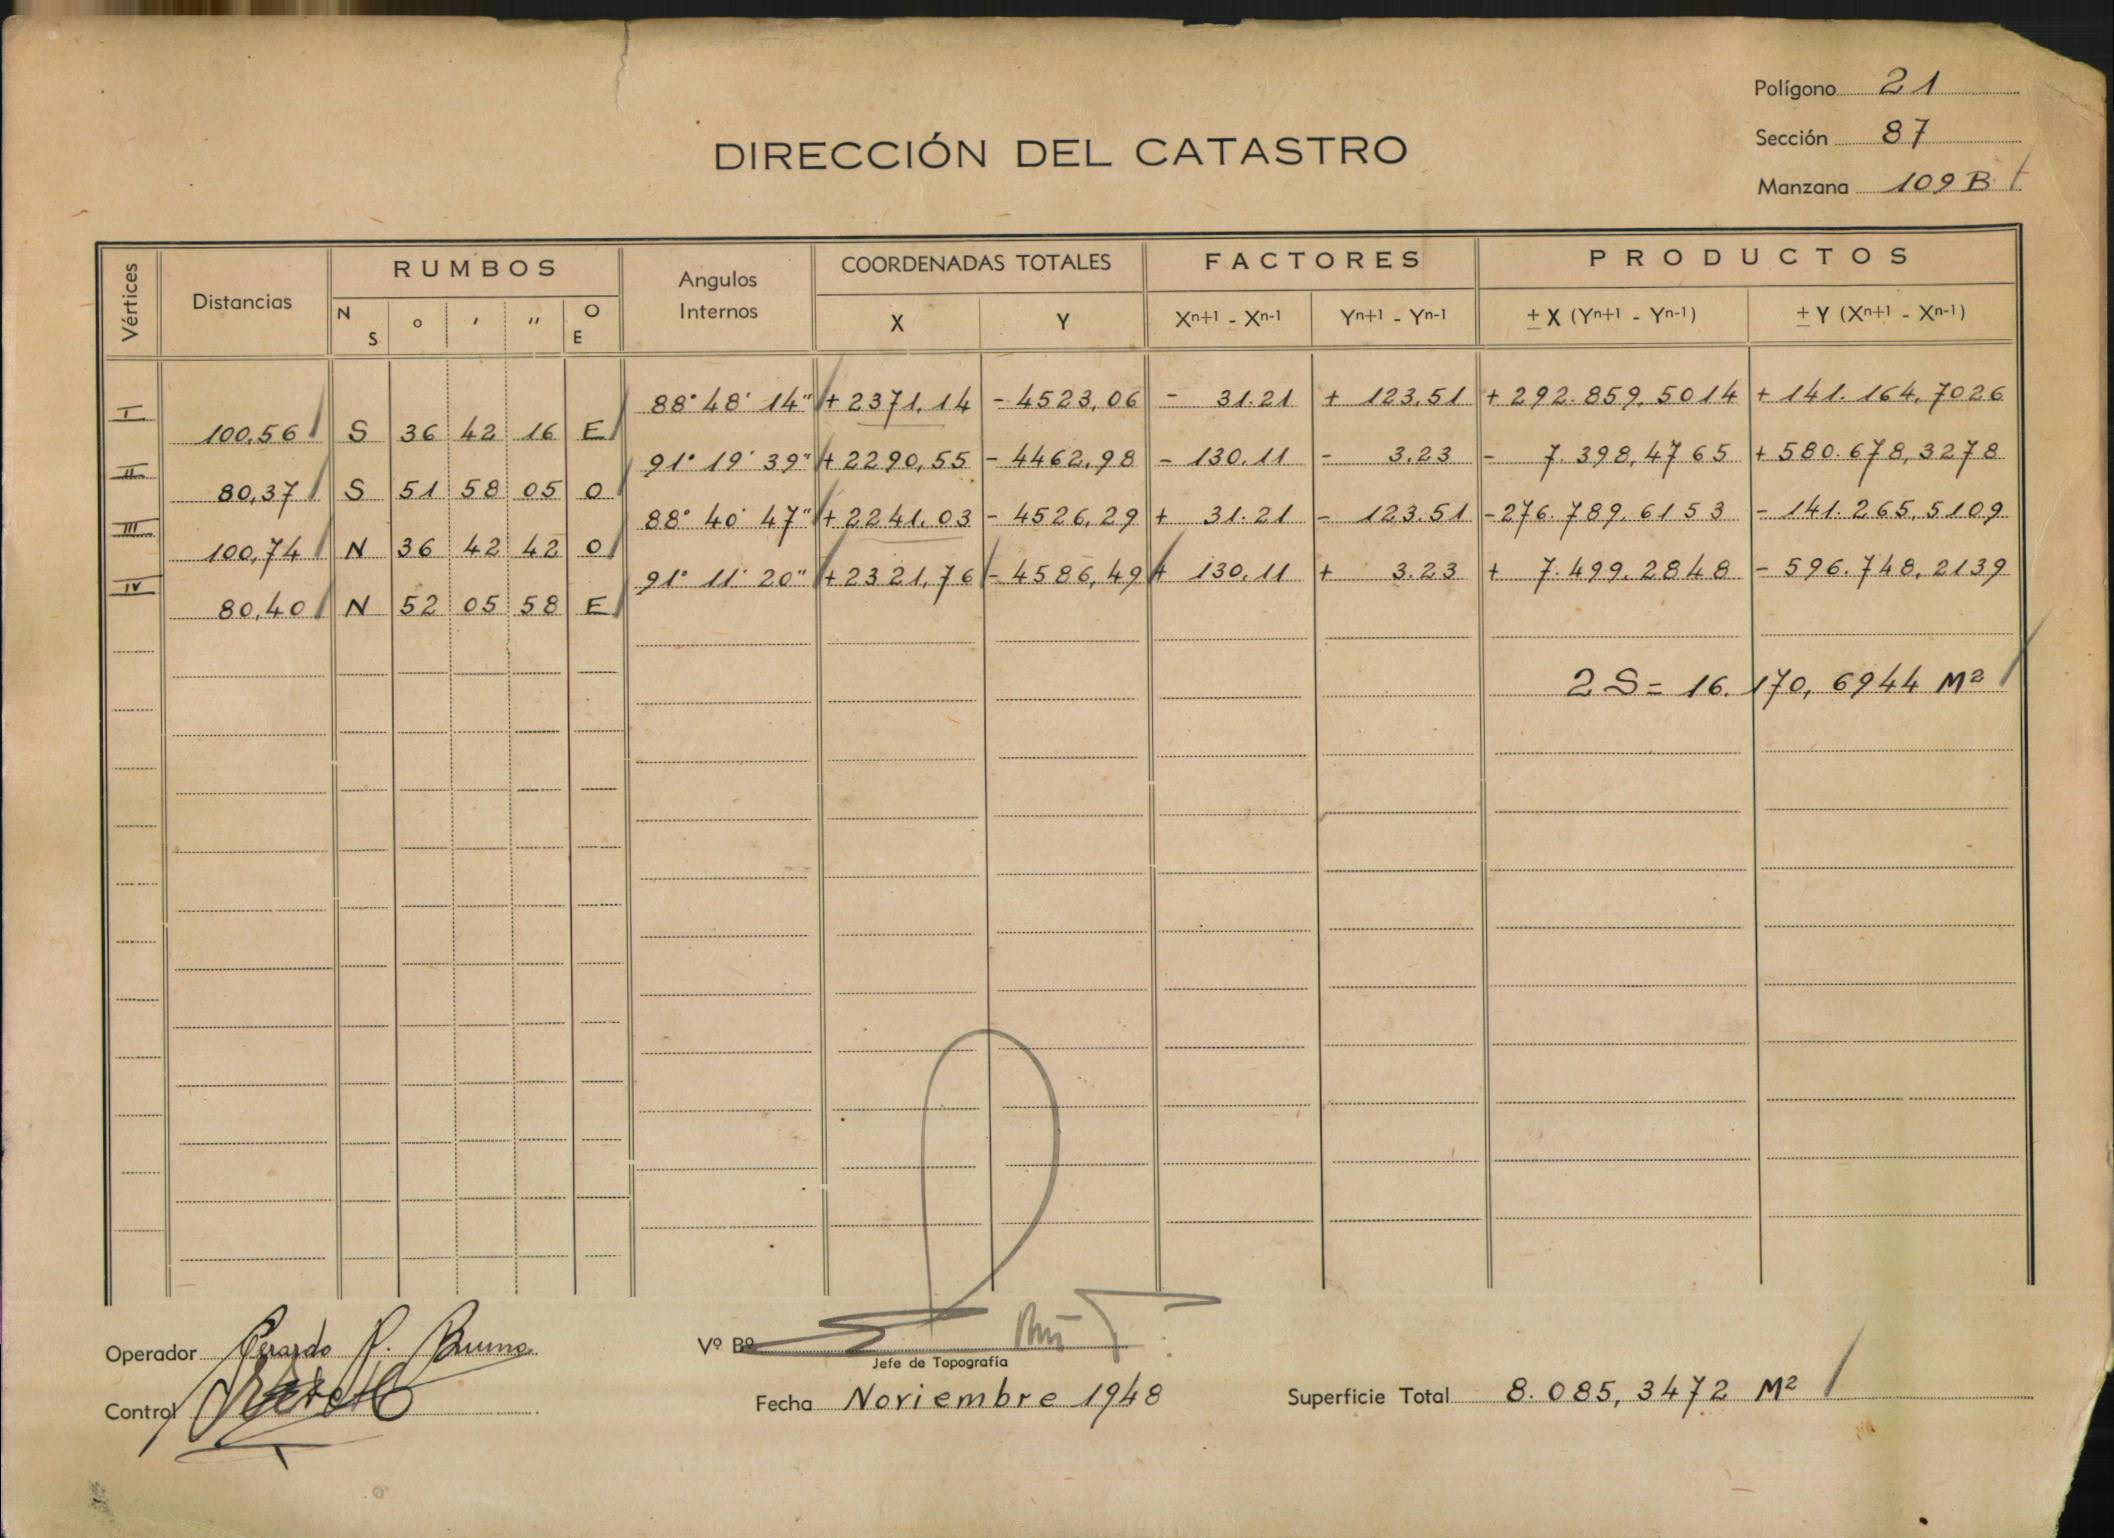 Polígono 21
Sección 87
Manzana 109 B
DIRECCIÓN DEL CATASTRO
Vértices Distancias RUMBOS Angulos Internos COORDENADAS TOTALES FACTORES PRODUCTOS
N S o ' '' O E X Y Xn+1 - Xn-1 Yn+1 - Yn-1 ± X (Yn+1 - Yn-1) ± Y (Xn+1 - Xn-1)
88° 48' 14" + 2371,14 - 4523,06 - 31.21 + 123,51 + 292.859,5014 + 141.164,7026
I 100,56 S 36 42 16 E
91° 19' 39" + 2290,55 - 4462,98 - 130.11 - 3.23 - 7.398,4765 + 580.678,3278
II 80,37 S 51 58 05 O
88° 40' 47" + 2241,03 - 4526,29 + 31.21 - 123.51 - 276.789,6153 - 141.265,5109
III 100,74 N 36 42 42 O
91° 11' 20" + 2321,76 - 4586,49 + 130,11 + 3.23 + 7.499,2848 - 596.748,2139
IV 80,40 N 52 05 58 E
2 S = 16.170,6944 M²
Operador Gerardo P. Bruno
Vº Bº
Jefe de Topografía
Control
Fecha Noviembre 1948
Superficie Total 8.085,3472 M²